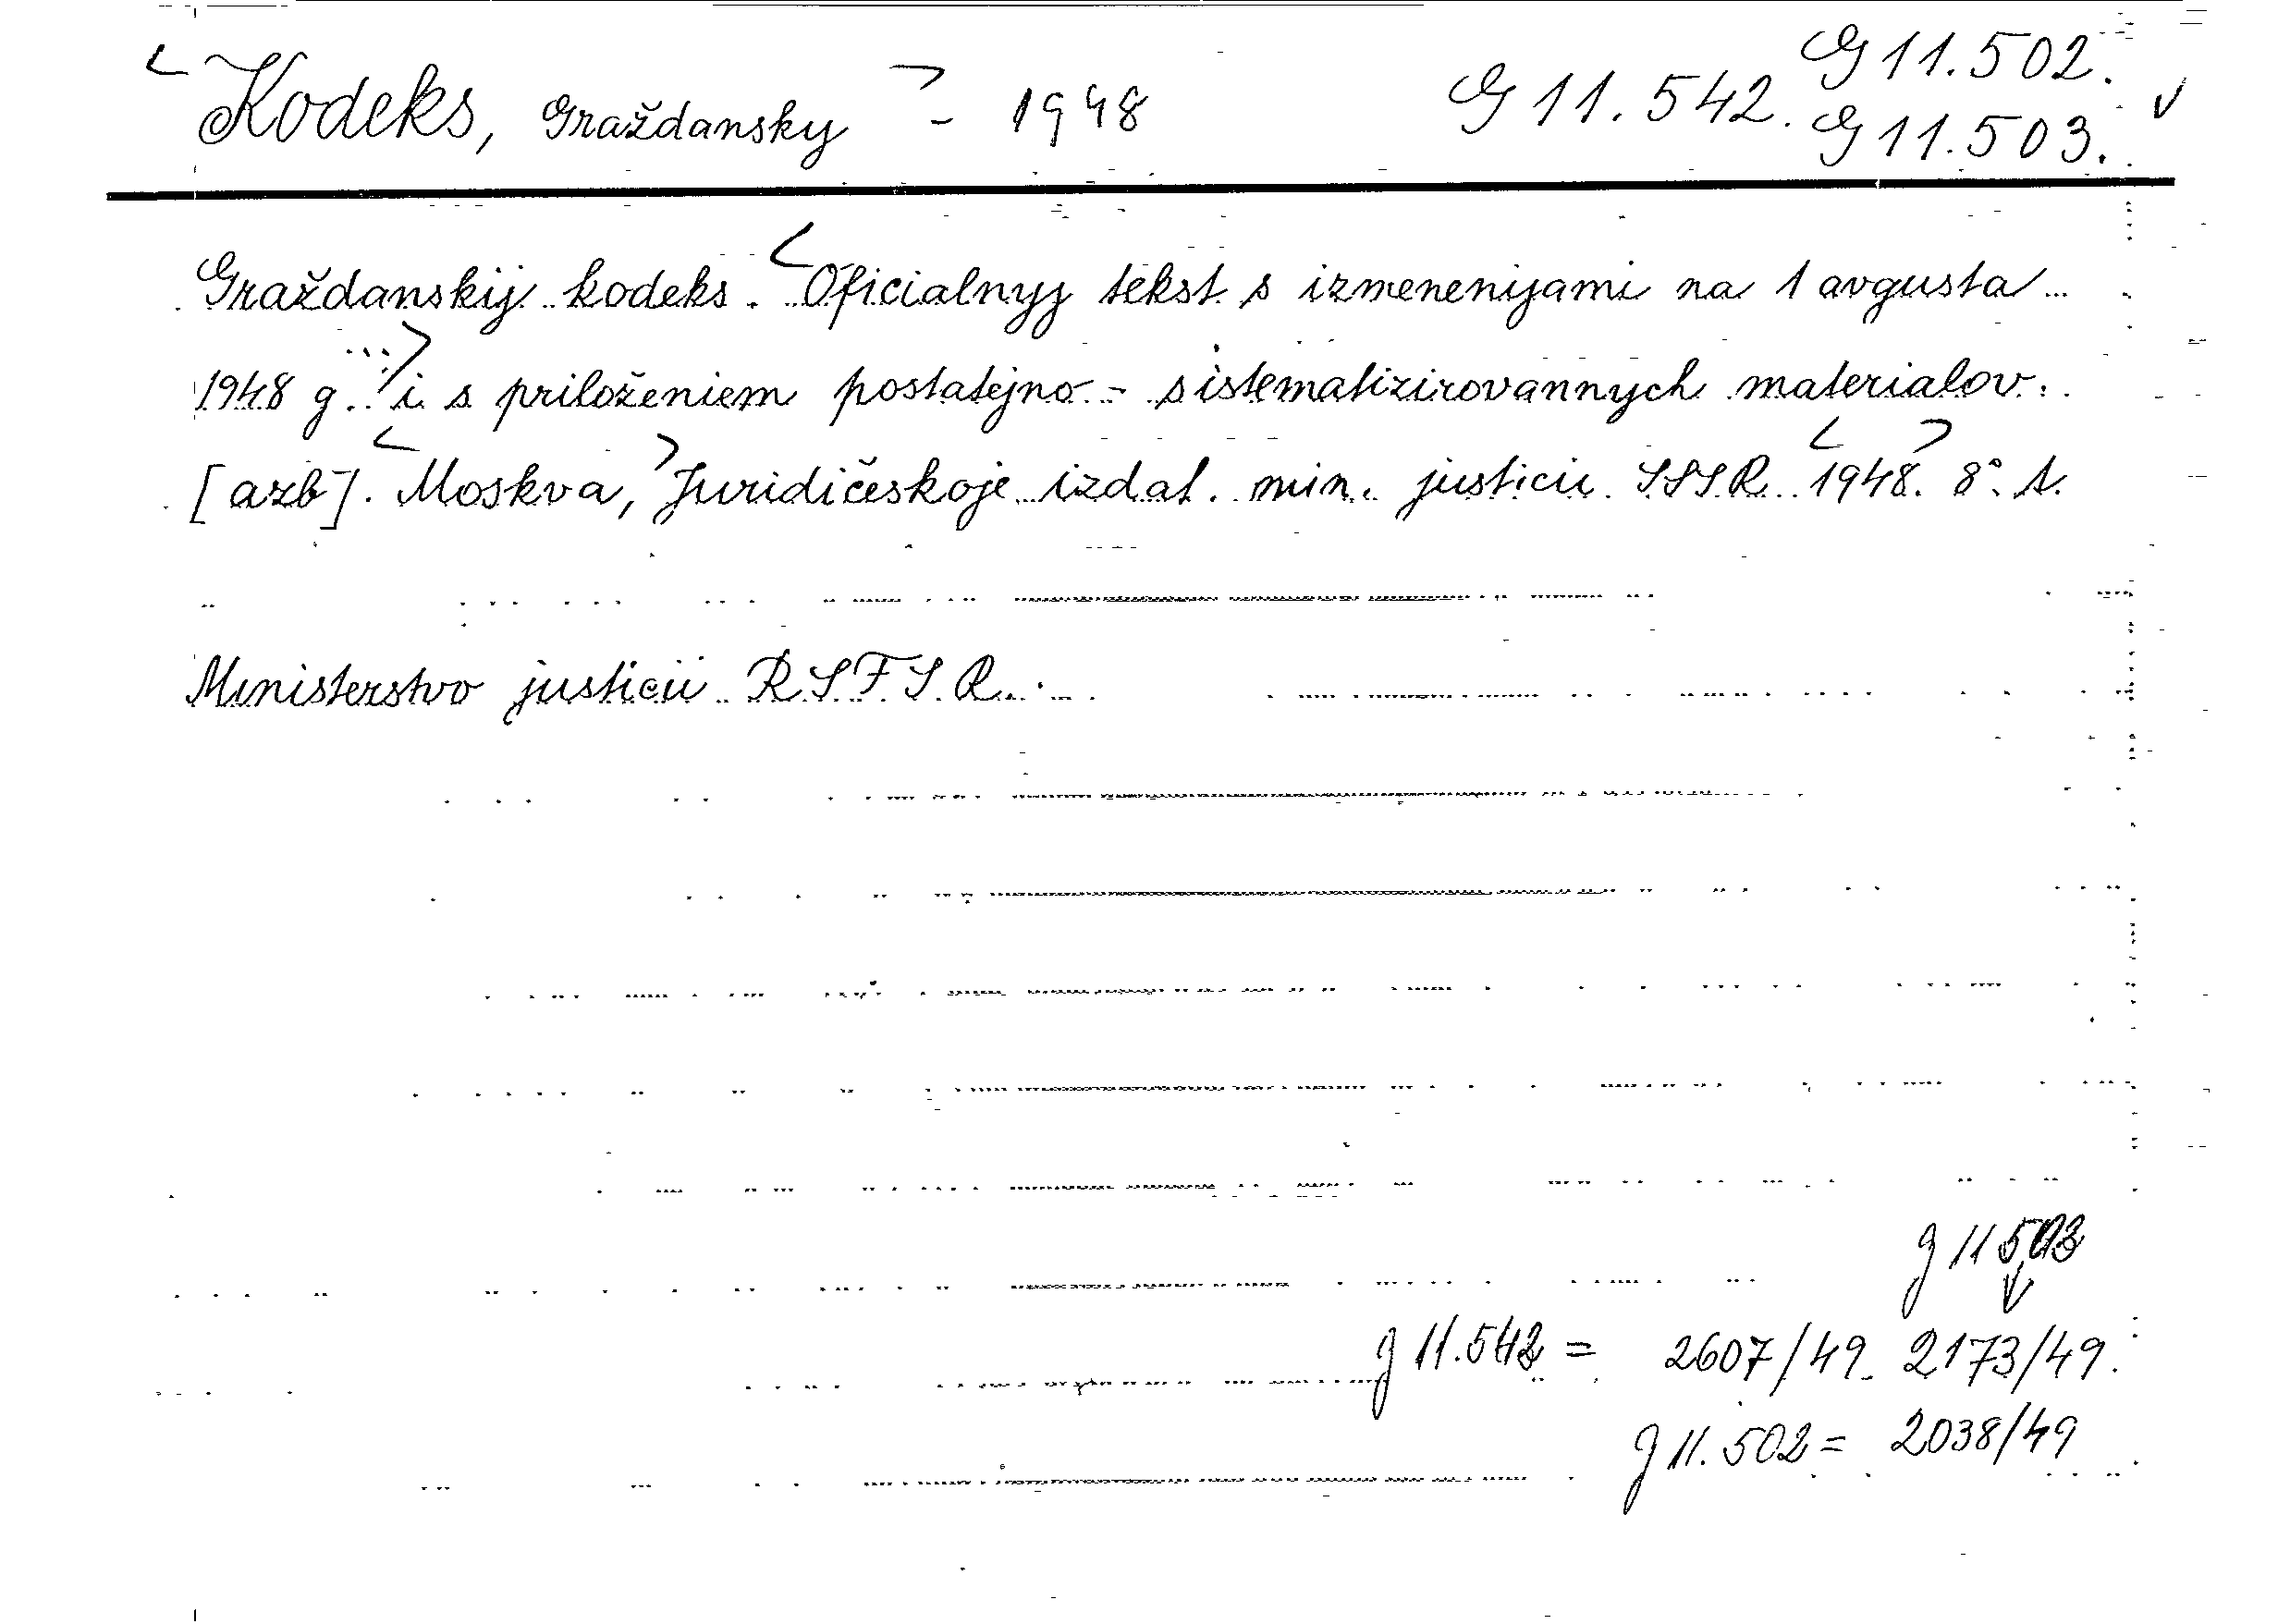 <Kodeks, Graždansky> - 1948 G 11.542. G 11.502. G 11.503. √
Graždanskij kodeks. <Oficialnyj tekst s izmenenijami na 1 avgusta
1948 g...> i s priloženiem postatejno - sistematizirovannych materialov.
[azb]. <Moskva,> Juridičeskoje izdat. min. justicii SSSR <1948.> 8°. A.
Ministerstvo justicii RSFSR.
g 11503
g 11.542 = 2607/49. 2173/49.
g 11.502 = 2038/49